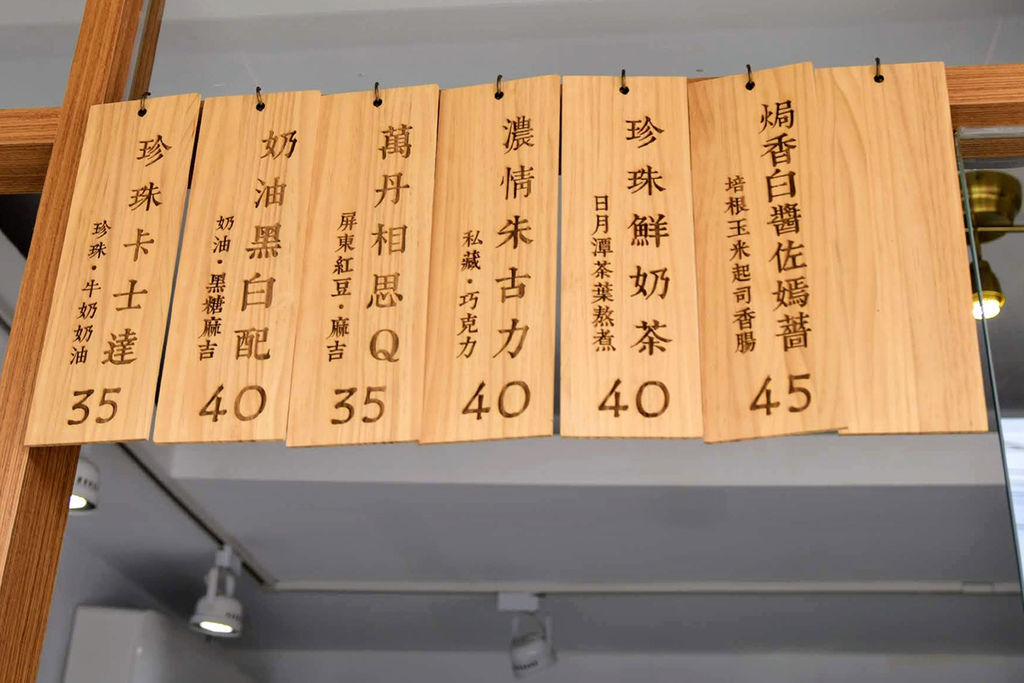 珍珠卡士達
珍珠·牛奶奶油
35
奶油黑白配
奶油·黑糖麻吉
40
萬丹相思Q
屏東紅豆·麻吉
35
濃情朱古力
私藏·巧克力
40
珍珠鮮奶茶
日月潭茶葉熬煮
40
焗香白醬佐嫣薔
培根玉米起司香腸
45